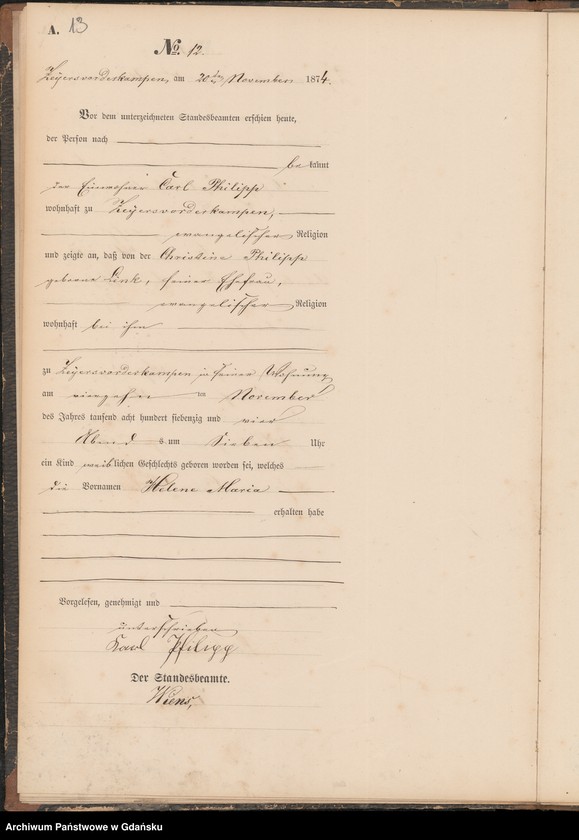 A. 13
No. 12.
Zeyersvorderkampen, am 20ten November 1874.
Vor dem unterzeichneten Standesbeamten erschien heute,
der Person nach
be kannt
der Einwohner Carl Philipp
wohnhaft zu Zeyersvorderkampen,
evangelischer Religion
und zeigte an, daß von der Christine Philipp
geborene Link, seiner Ehefrau,
evangelischer Religion
wohnhaft bei ihm
zu Zeyersvorderkampen in seiner Wohnung
am vierzehn ten November
des Jahres tausend acht hundert siebenzig und vier
Abend s um Sieben Uhr
ein Kind weiblichen Geschlechts geboren worden sei, welches
die Vornamen Helene Maria
erhalten habe
Vorgelesen, genehmigt und
unterschrieben
Karl Philipp
Der Standesbeamte.
Wiens,
Archiwum Państwowe w Gdańsku